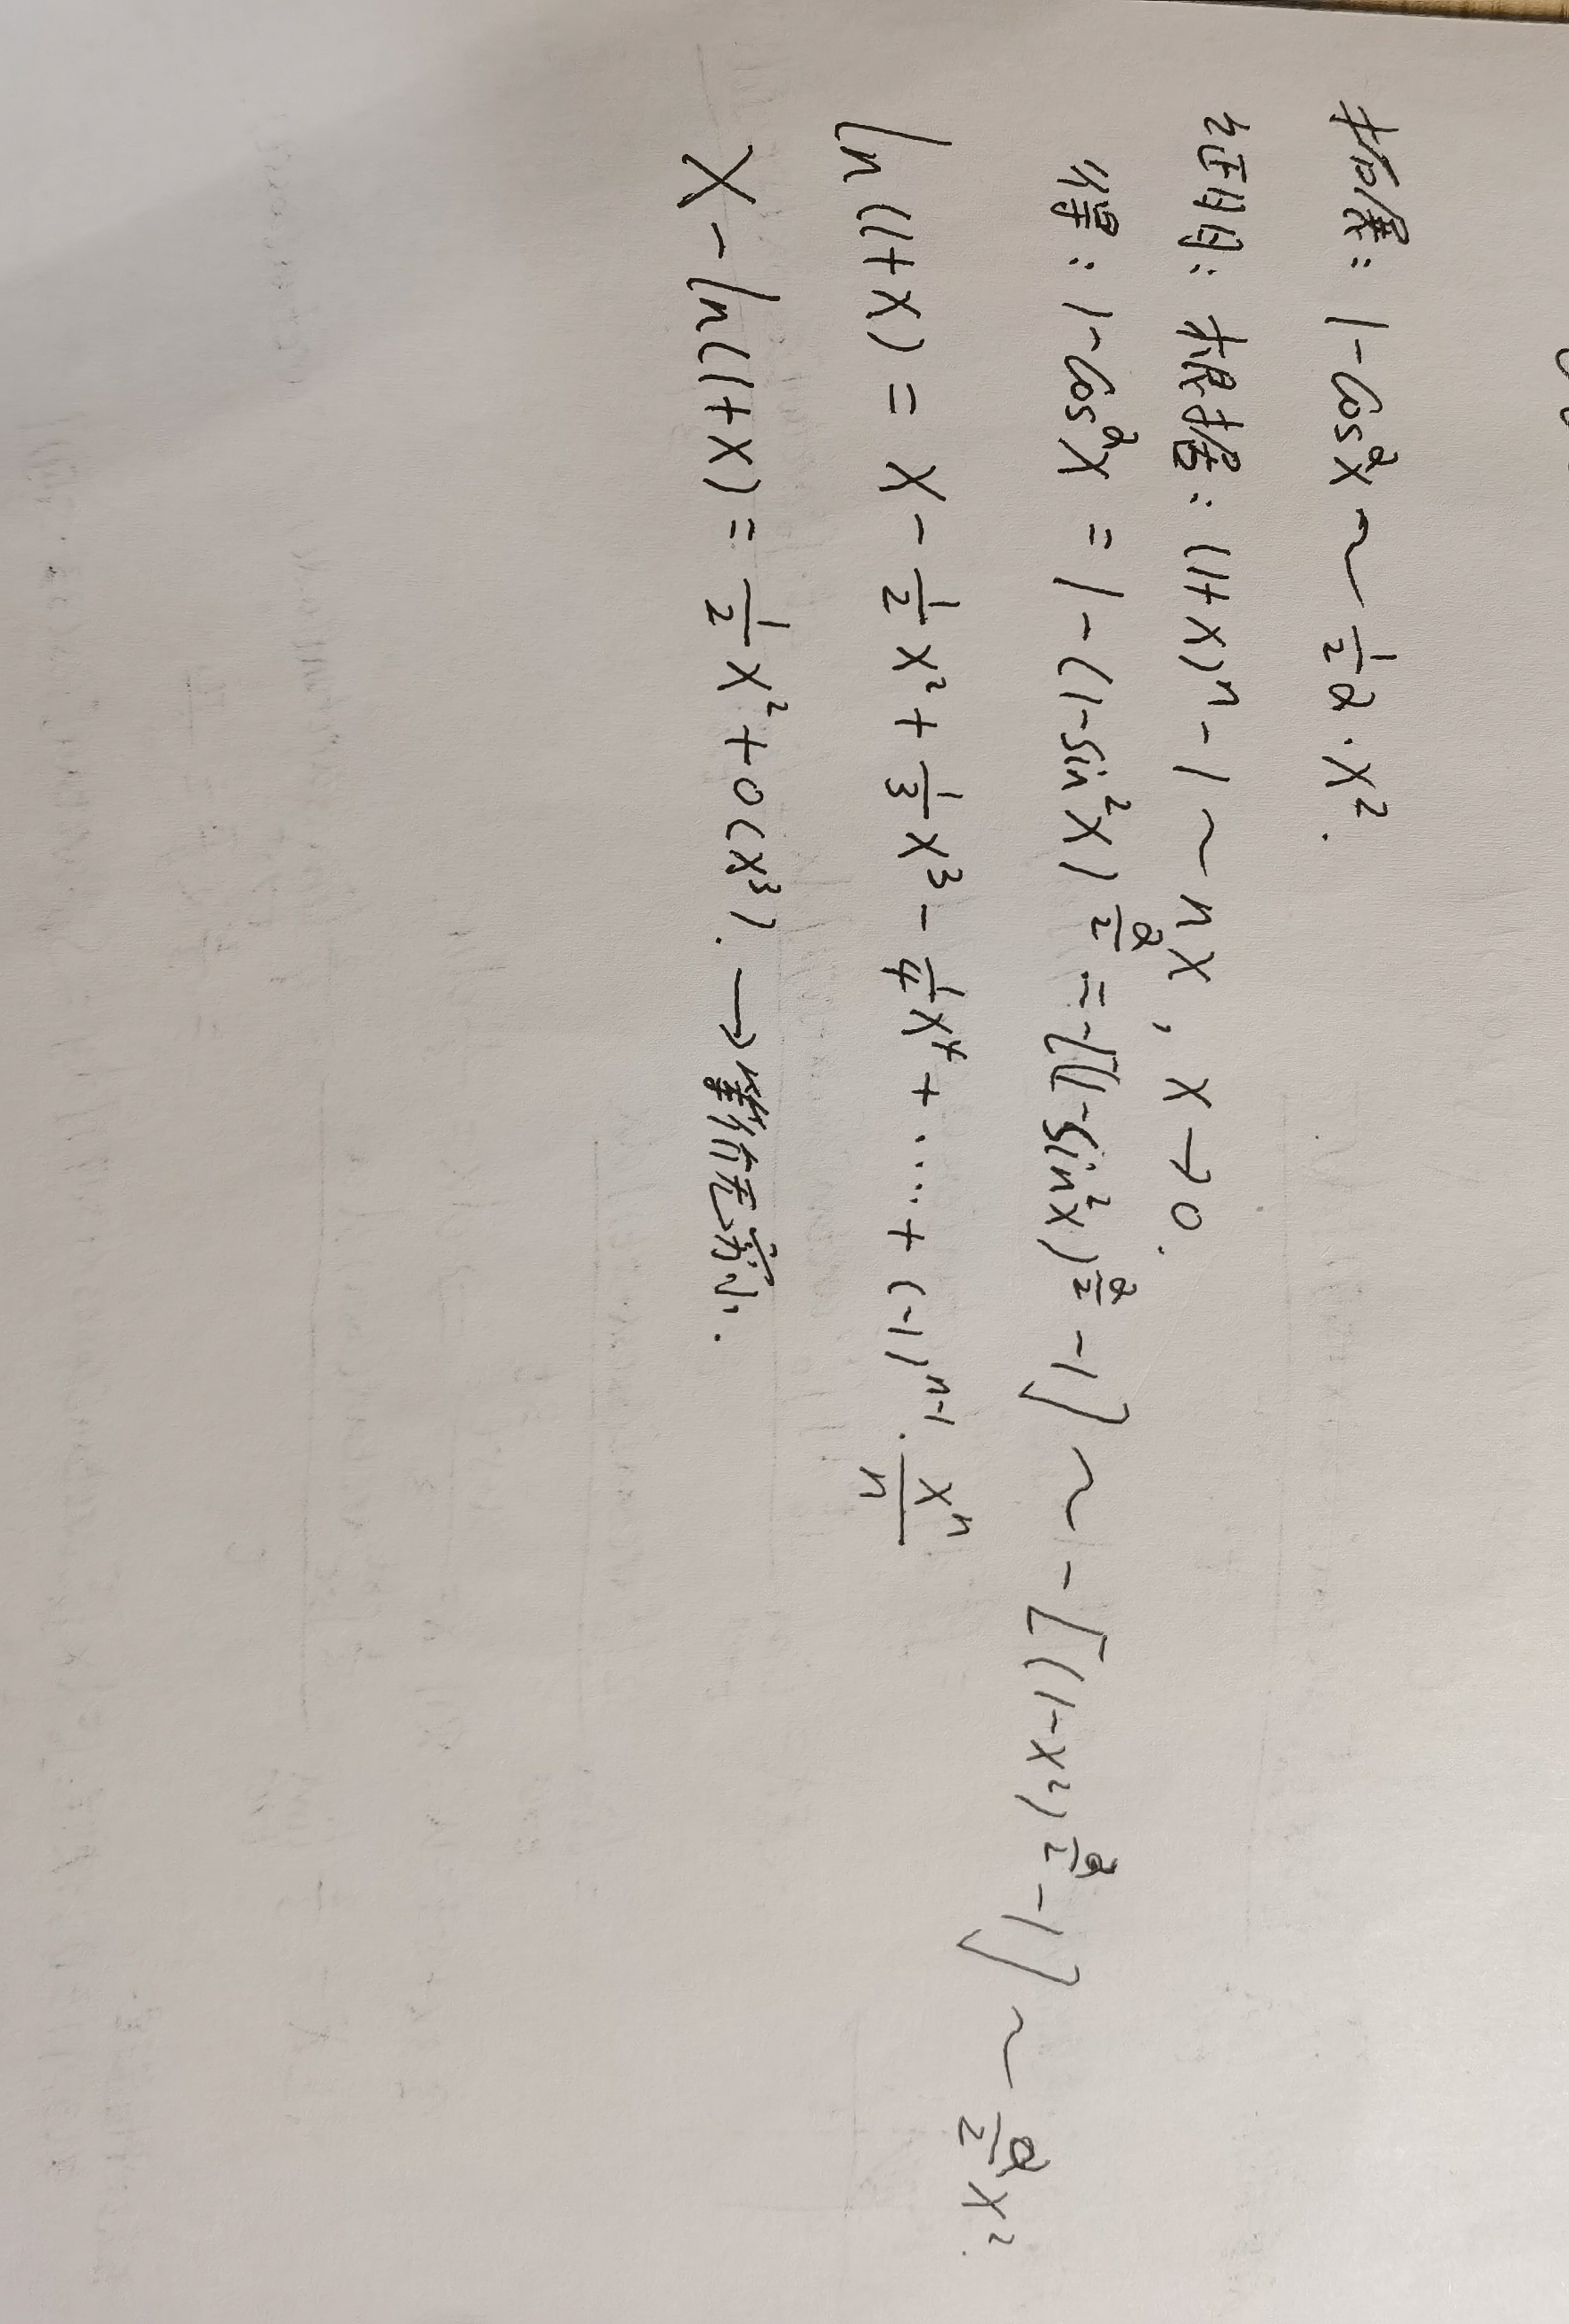 拓展: 1-cos^α x ~ 1/2 α · x².
证明: 根据: (1+x)ⁿ - 1 ~ nx, x→0.
得: 1-cos^α x = 1-(1-sin²x)^(α/2) = -[(1-sin²x)^(α/2) - 1] ~ -[(1-x²)^(α/2) - 1] ~ α/2 x².
ln(1+x) = x - 1/2 x² + 1/3 x³ - 1/4 x⁴ + ... + (-1)^(n-1) · xⁿ/n
x - ln(1+x) = 1/2 x² + o(x³). → 等价无穷小.